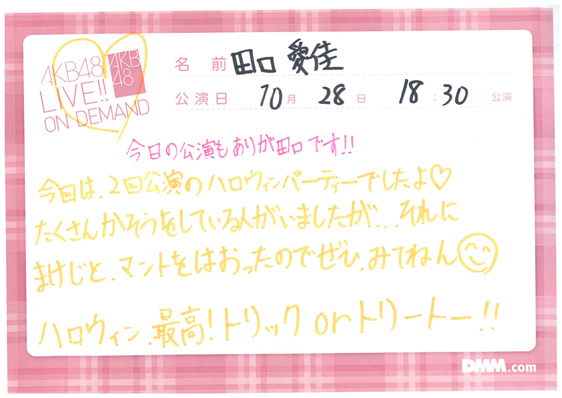 AKB48
LIVE!!
ON DEMAND
AKB
48
名 前 田口 愛佳
公演日 10月 28日 18:30 公演
今日の公演もありが田口です!!
今日は、2回公演のハロウィンパーティーでしたよ♡
たくさんかそうをしている人がいましたが...それに
まけじと、マントをはおったのでぜひ、みてねん
ハロウィン、最高!トリック or トリートー!!
DMM.com